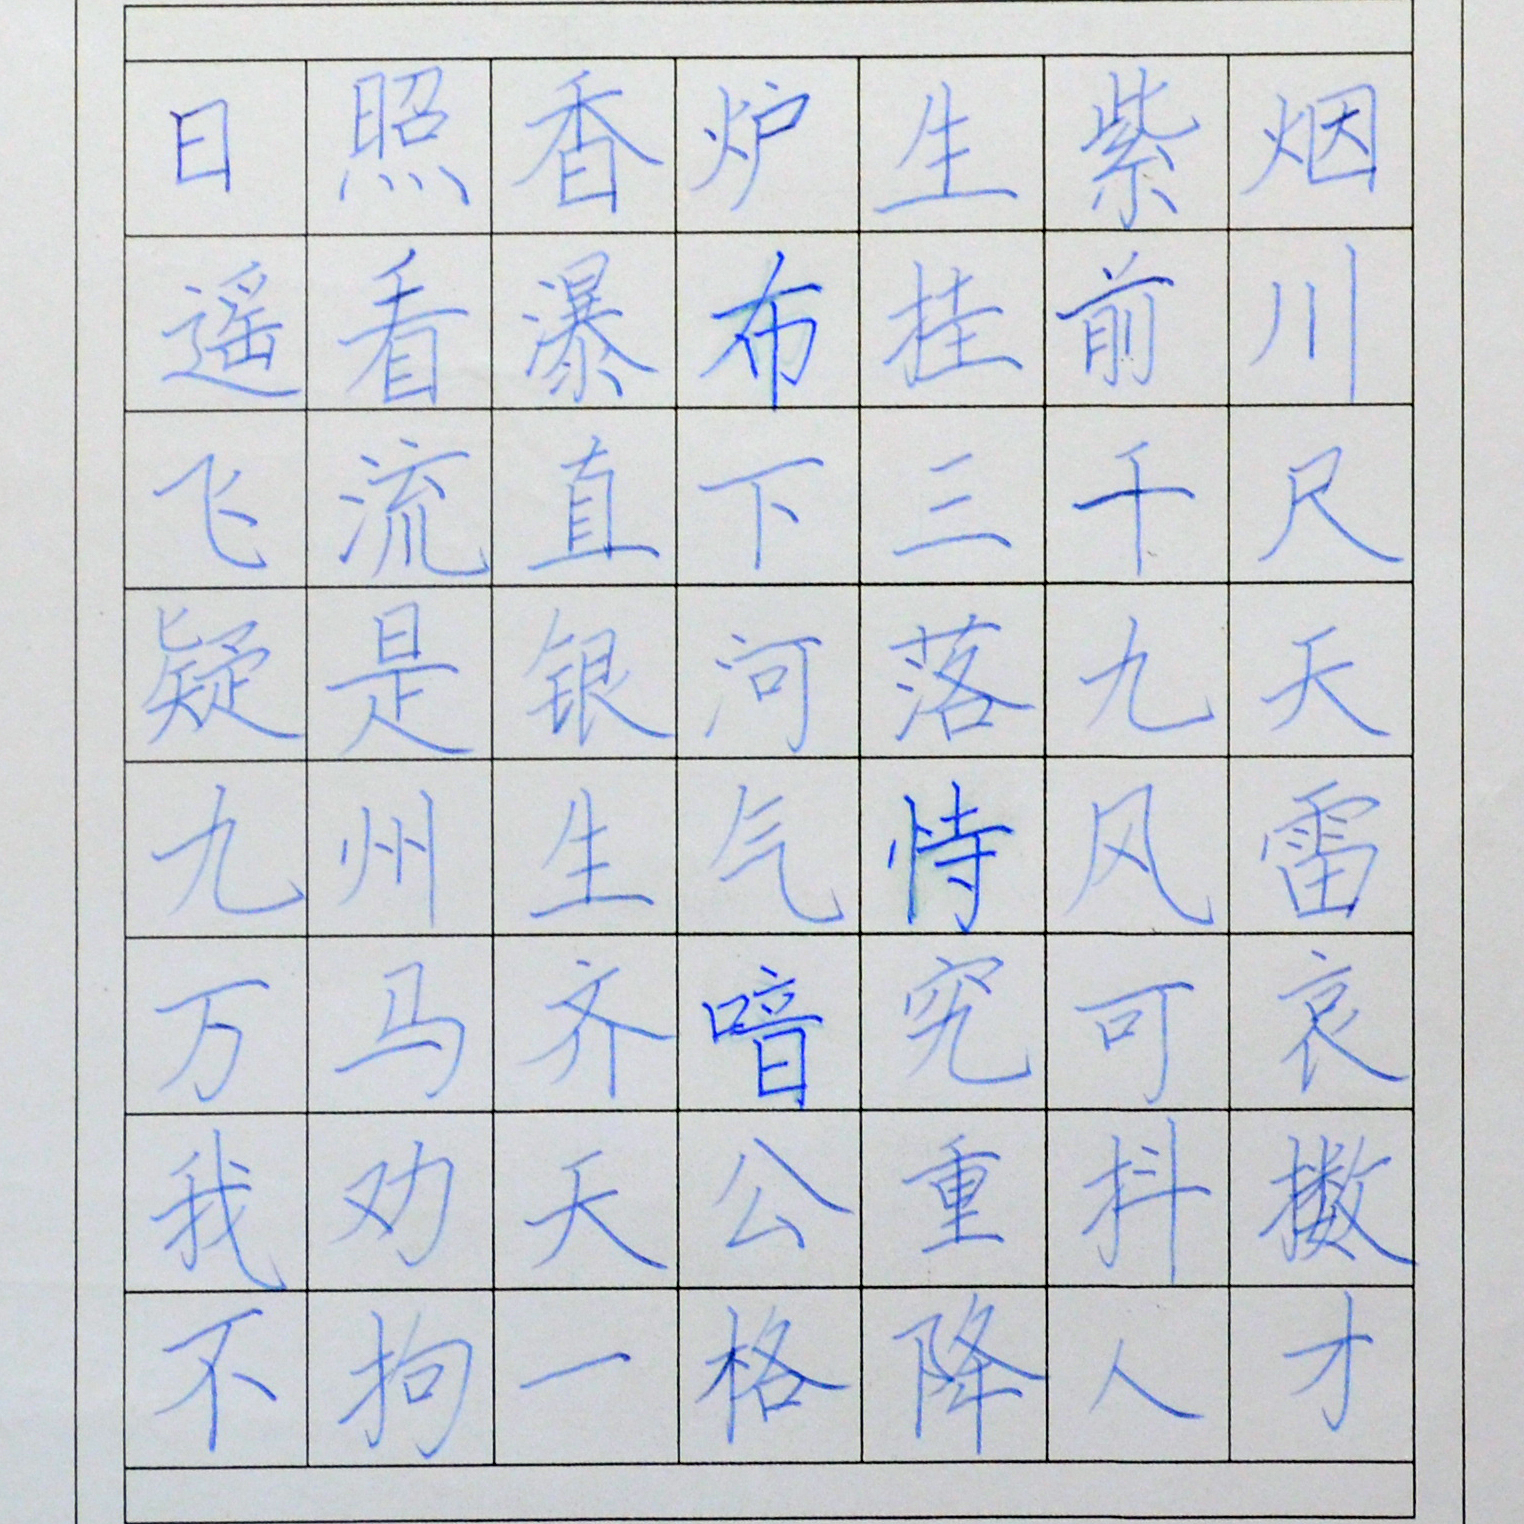 日照香炉生紫烟
遥看瀑布挂前川
飞流直下三千尺
疑是银河落九天
九州生气恃风雷
万马齐喑究可哀
我劝天公重抖擞
不拘一格降人才